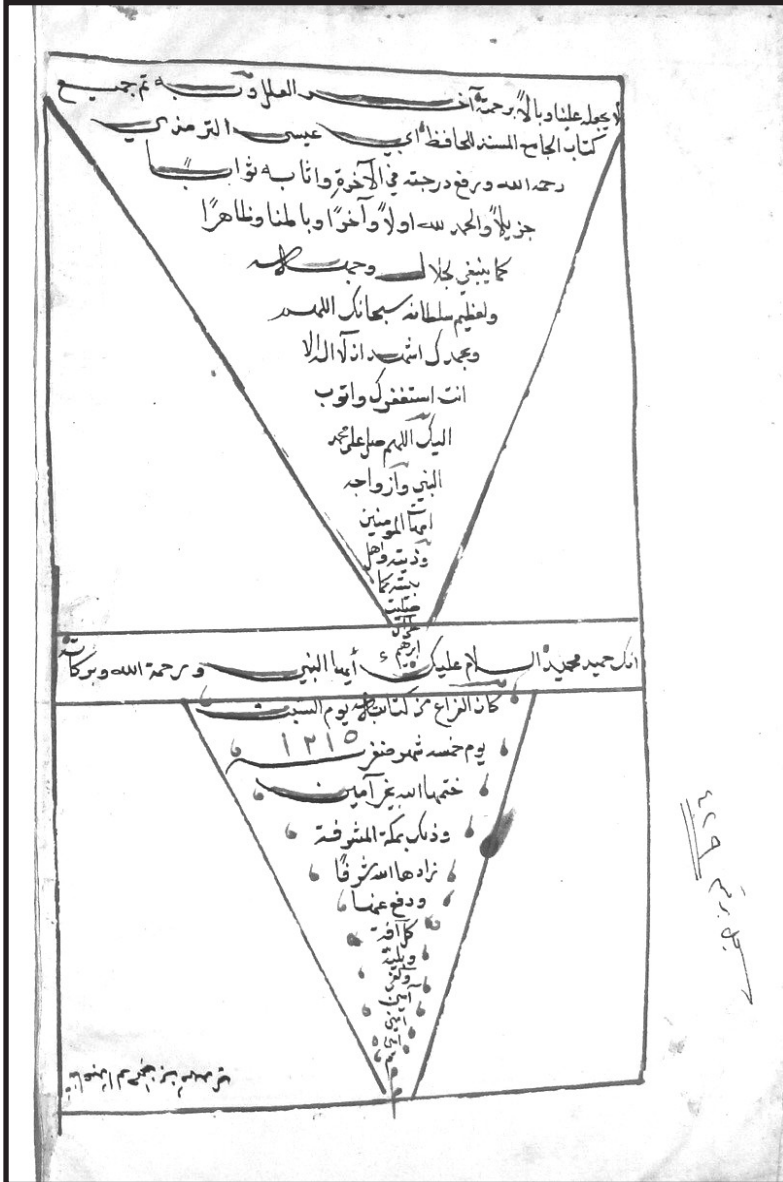 لا يجعله علينا وبالاً برحمته آخر العلل وبه تم جميع
كتاب الجامع المسند للحافظ أبي عيسى الترمذي
رحمه الله ورفع درجته في الآخرة واثابه ثواباً
جزيلاً والحمد لله اولاً وآخرًا وباطنا وظاهرًا
كما ينبغي لجلال وجهه
ولعظيم سلطانه سبحانك اللهم
وبحمدك اشهد ان لا اله الا
انت استغفرك واتوب
اليك اللهم صل على محمد
النبي وازواجه
امهات المومنين
وذريته واهل
بيته كما
صليت
على
ابرهيم
انك حميد مجيد السلام عليك أيها النبي ورحمة الله وبركاته
كان الفراغ من كتابته يوم السبت
يوم خمسه شهر صفر ١٢١٥
ختمها الله بخير آمين
وذلك بمكة المشرفة
زادها الله شرفًا
ودفع عنها
كل آفة
وبلية
آمين
امين
سجل برقم ٤٢٩